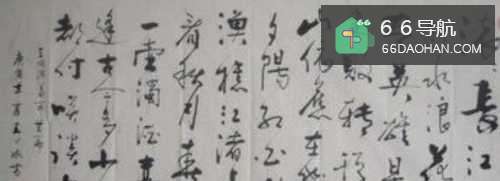 66导航
66DAOHAN.COM
長江
水浪花
英雄是
敗轉頭
山依舊在
夕陽紅白
漁樵江渚上
看秋月春
一壺濁酒喜
逢古今多少
都付笑談